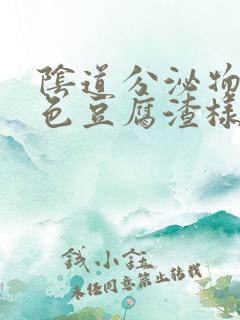 陰道分泌物
色豆腐渣樣
錢小鈺
未经同意禁止转载